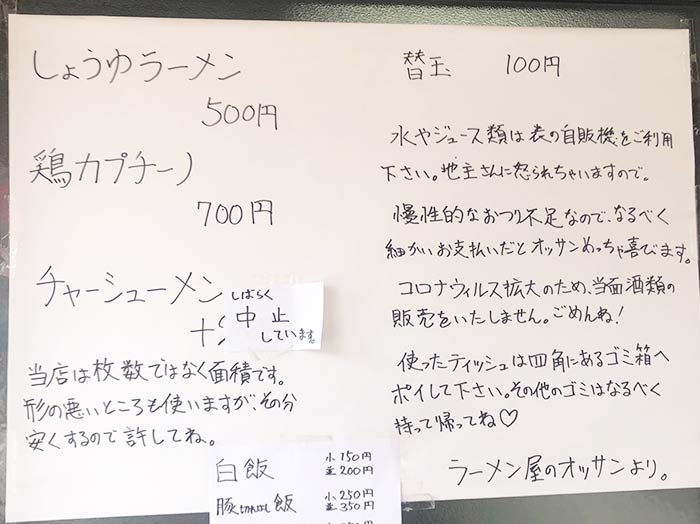 しょうゆラーメン
500円
鶏カプチーノ
700円
チャーシューメン
しばらく
中止
しています。
当店は枚数ではなく面積です。
形の悪いところも使いますが、その分
安くするので許してね。
白飯 小150円
並200円
飯 小250円
並350円
替玉 100円
水やジュース類は表の自販機をご利用
下さい。地主さんに怒られちゃいますので。
慢性的なおつり不足なので、なるべく
細かいお支払いだとオッサンめっちゃ喜びます。
コロナウィルス拡大のため、当面酒類の
販売をいたしません。ごめんね!
使ったティッシュは四角にあるゴミ箱へ
ポイして下さい。その他のゴミはなるべく
持って帰ってね♡
ラーメン屋のオッサンより。